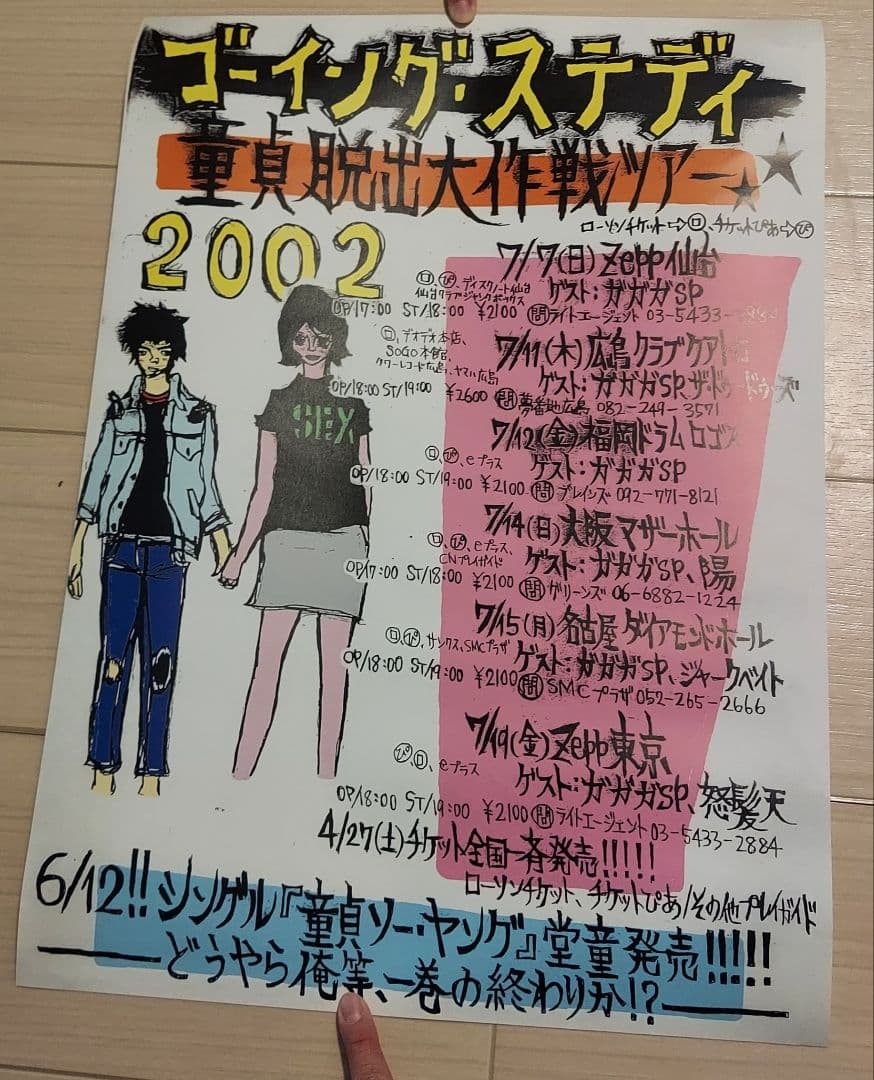 ゴーイング・ステディ
童貞脱出大作戦ツアー★★
2002
ローソンチケット⇨ロ、チケットぴあ⇨ぴ
7/7(日)Zepp仙台
ロ、ぴ、ディスクノート仙台
仙台クラブジャンクボックス
ゲスト:ガガガSP
OP/17:00 ST/18:00 ¥2100 問ライトエージェント 03-5433-2884
7/11(木)広島クラブクアトロ
ロ、デオデオ本店、
SOGO本館、
タワーレコード広島、ヤマハ広島
ゲスト:ガガガSP、ザ・
OP/18:00 ST/19:00 ¥2600 問夢番地広島 082-249-3571
7/12(金)福岡ドラムロゴス
ロ、ぴ、eプラス
ゲスト:ガガガSP
OP/18:00 ST/19:00 ¥2100 問ブレインズ 092-771-8121
7/14(日)大阪マザーホール
ロ、ぴ、eプラス、
CNプレイガイド
ゲスト:ガガガSP、陽
OP/17:00 ST/18:00 ¥2100 問グリーンズ 06-6882-1224
7/15(月)名古屋ダイアモンドホール
ロ、ぴ、サンクス、SMCプラザ
ゲスト:ガガガSP、ジャークベイト
OP/18:00 ST/19:00 ¥2100 問SMCプラザ052-265-2666
7/19(金)Zepp東京
ぴ、ロ、eプラス
ゲスト:ガガガSP、怒髪天
OP/18:00 ST/19:00 ¥2100 問ライトエージェント03-5433-2884
4/27(土)チケット全国一斉発売!!!!!
ローソンチケット、チケットぴあ/その他プレイガイド
6/12!!シングル『童貞ソー・ヤング』堂童発売!!!!!
どうやら俺等、一巻の終わりか!?
SEX